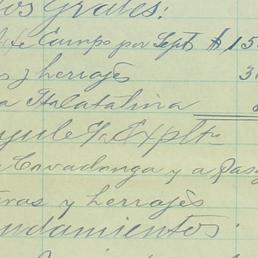 os Grales:
te Campo por Sept $ 15
s y herrajes 3
a Italatalina
yule % Explt
Covadonga y a Pas
ras y herrajes
ndamientos